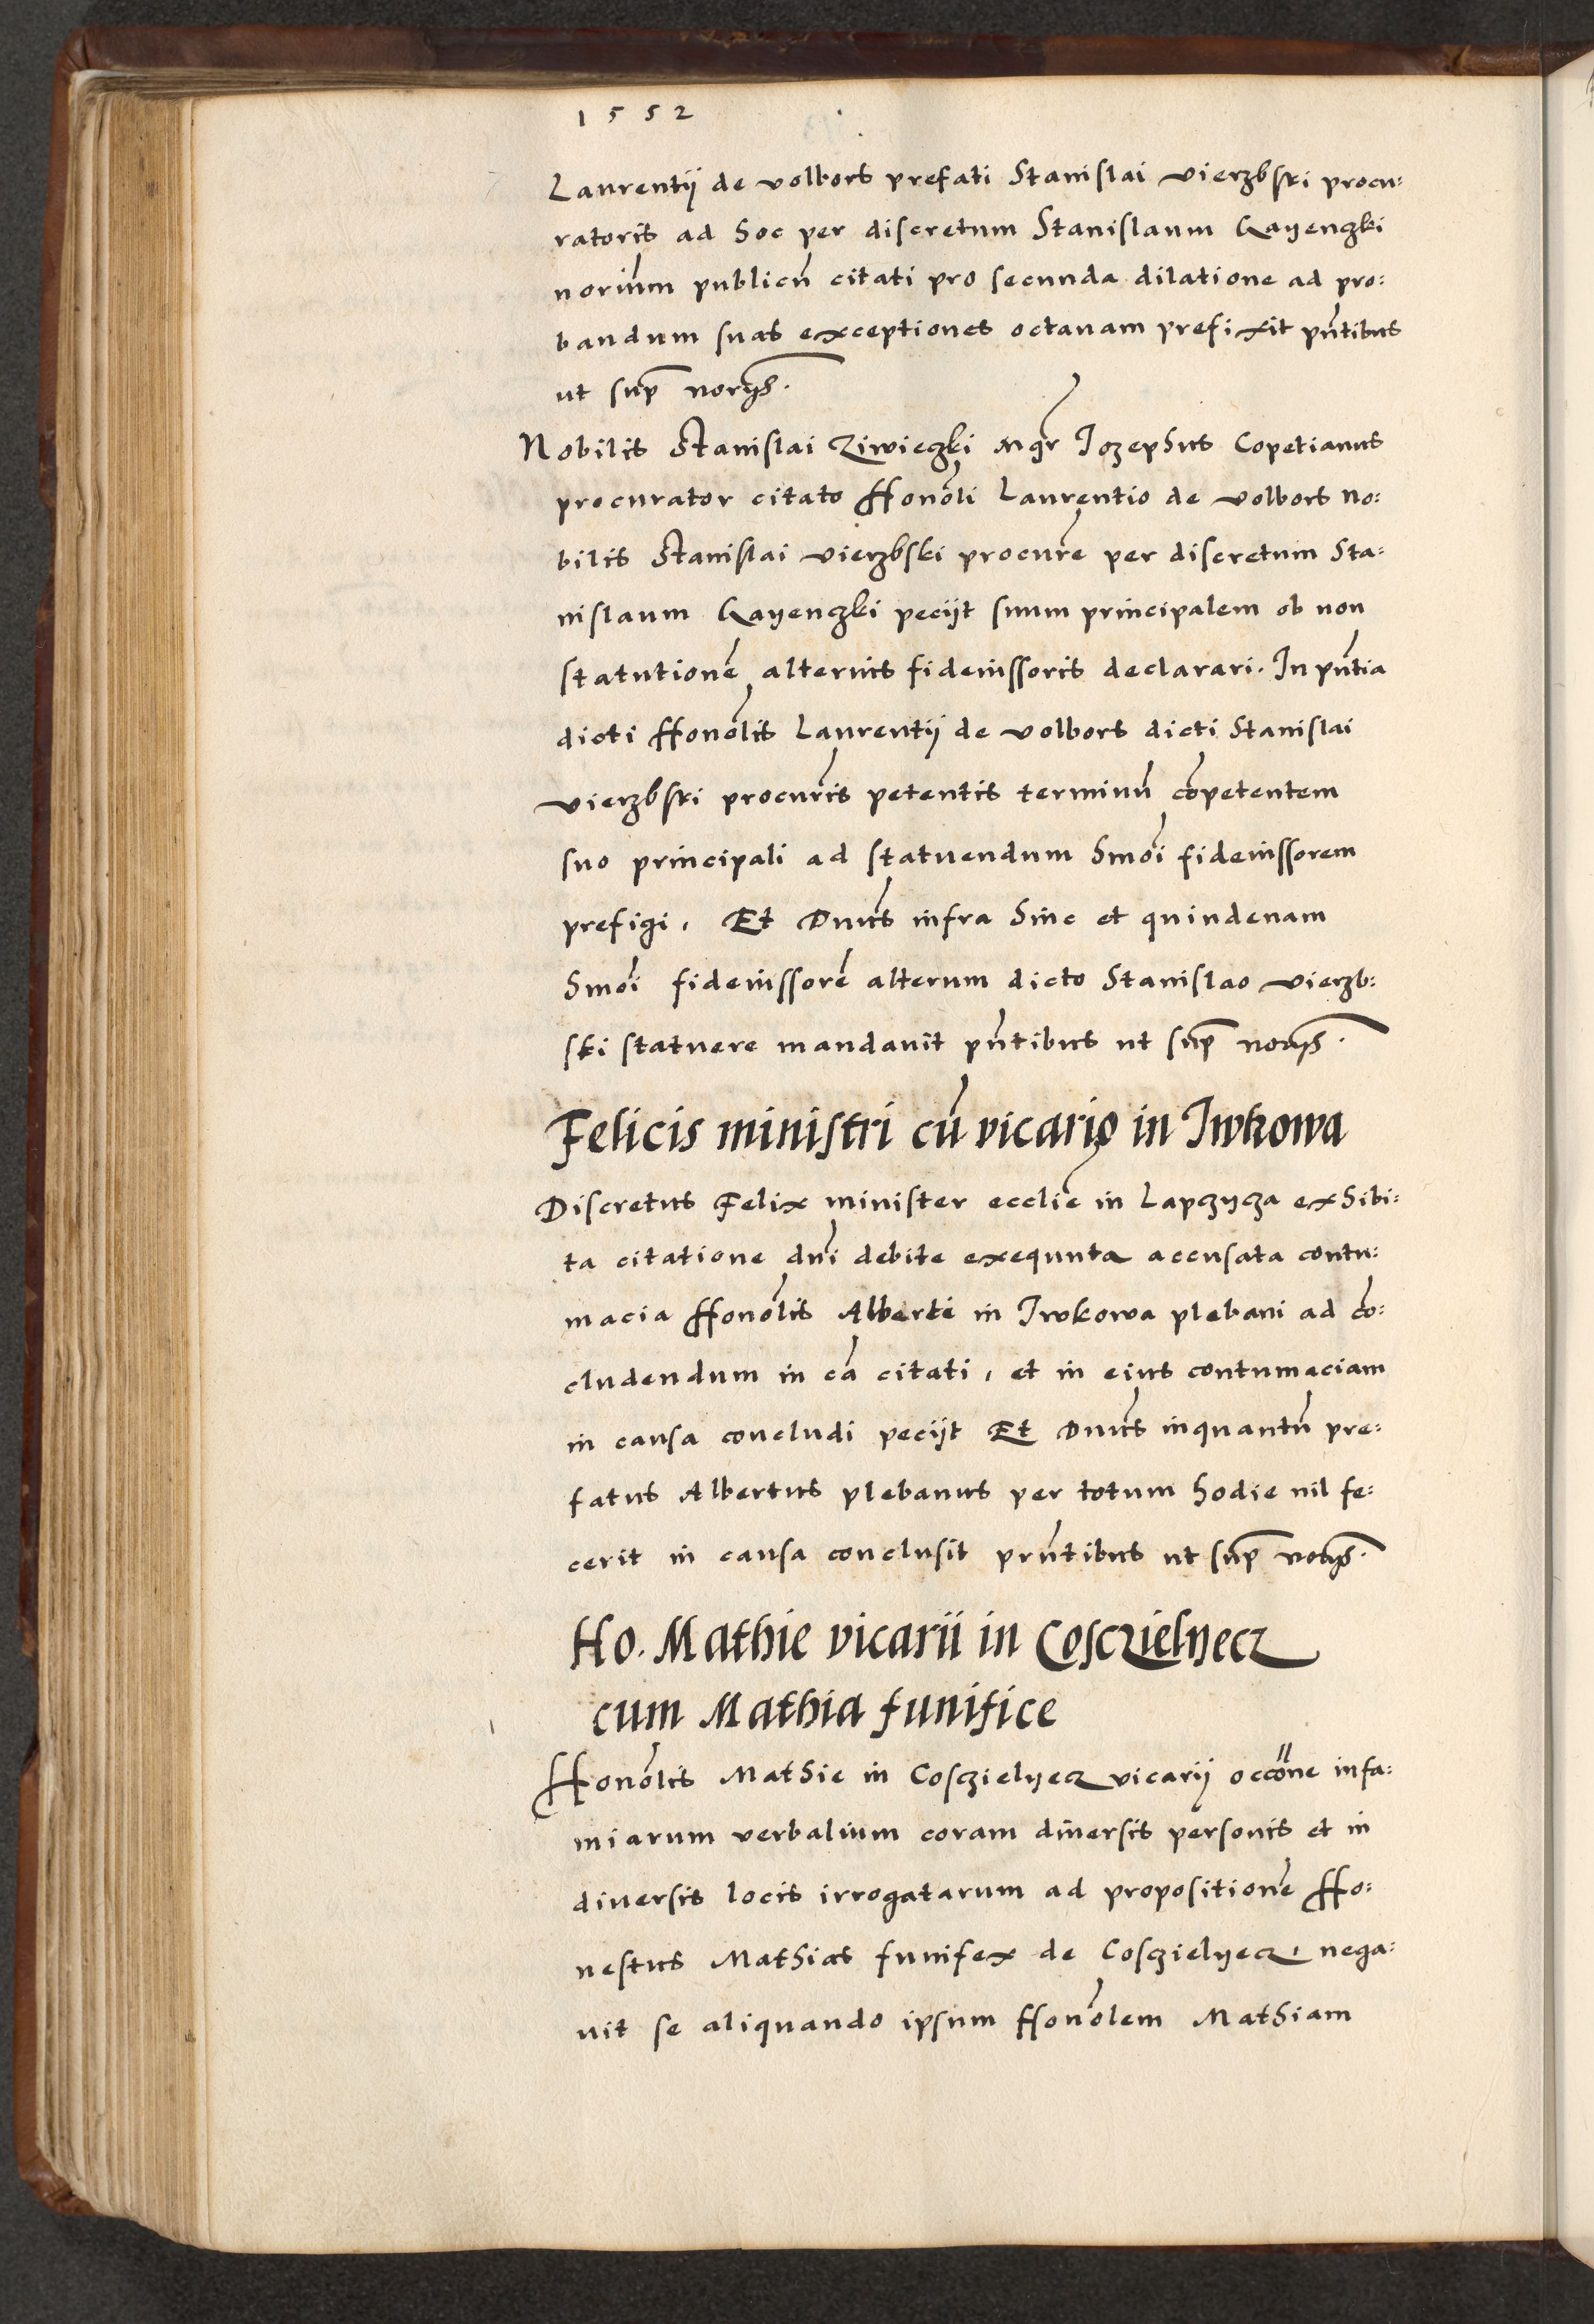 1552
Laurentij de volbors prefati Stanislai vierzbski procu:
ratoris ad hoc per discretum Stanislaum Gayenczki
norium publicū citati pro secunda dilatione ad pro:
bandum suas exceptiones octauam prefixit pn̄tibus
ut sup̄
Nobilis Stanislai Ziwieczki Mgr̄ Jozephus Copetianus
procurator citato Honōli Laurentio de volbors no:
bilis Stanislai vierzbski procurē per discretum Sta:
nislaum Gayenczki pecijt suum principalem ob non
statutionē alterius fideiussoris declarari. In pn̄tia
dicti Honōlis Laurentij de volbors dicti Stanislai
vierzbski procuris petentis terminū cōpetentem
suo principali ad statuendum hmōi fideiussorem
prefigi, Et Dnus infra hinc et quindenam
hmōi fideiussorē alterum dicto Stanislao vierzb:
ski statuere mandauit pn̄tibus ut sup̄
Felicis ministri cū vicario in Iwkowa
Discretus Felix minister ecclie in Lapczycza exhibi:
ta citatione dni debite exequuta accusata contu:
macia Honōlis Alberti in Iwkowa plebani ad cō:
cludendum in cā citati, et in eius contumaciam
in causa concludi pecijt Et Dnus inquantū pre:
fatus Albertus plebanus per totum hodie nil fe:
cerit in causa conclusit prn̄tibus ut sup̄
Ho. Mathie vicarii in Cosczielyecz
cum Mathia funifice
Honōlis Mathie in Cosczielyecz vicarij occōne infa:
miarum verbalium coram diuersis personis et in
diuersis locis irrogatarum ad propositionē Ho:
nestus Mathias funifex de Cosczielyecz, nega:
uit se aliquando ipsum Honōlem Mathiam